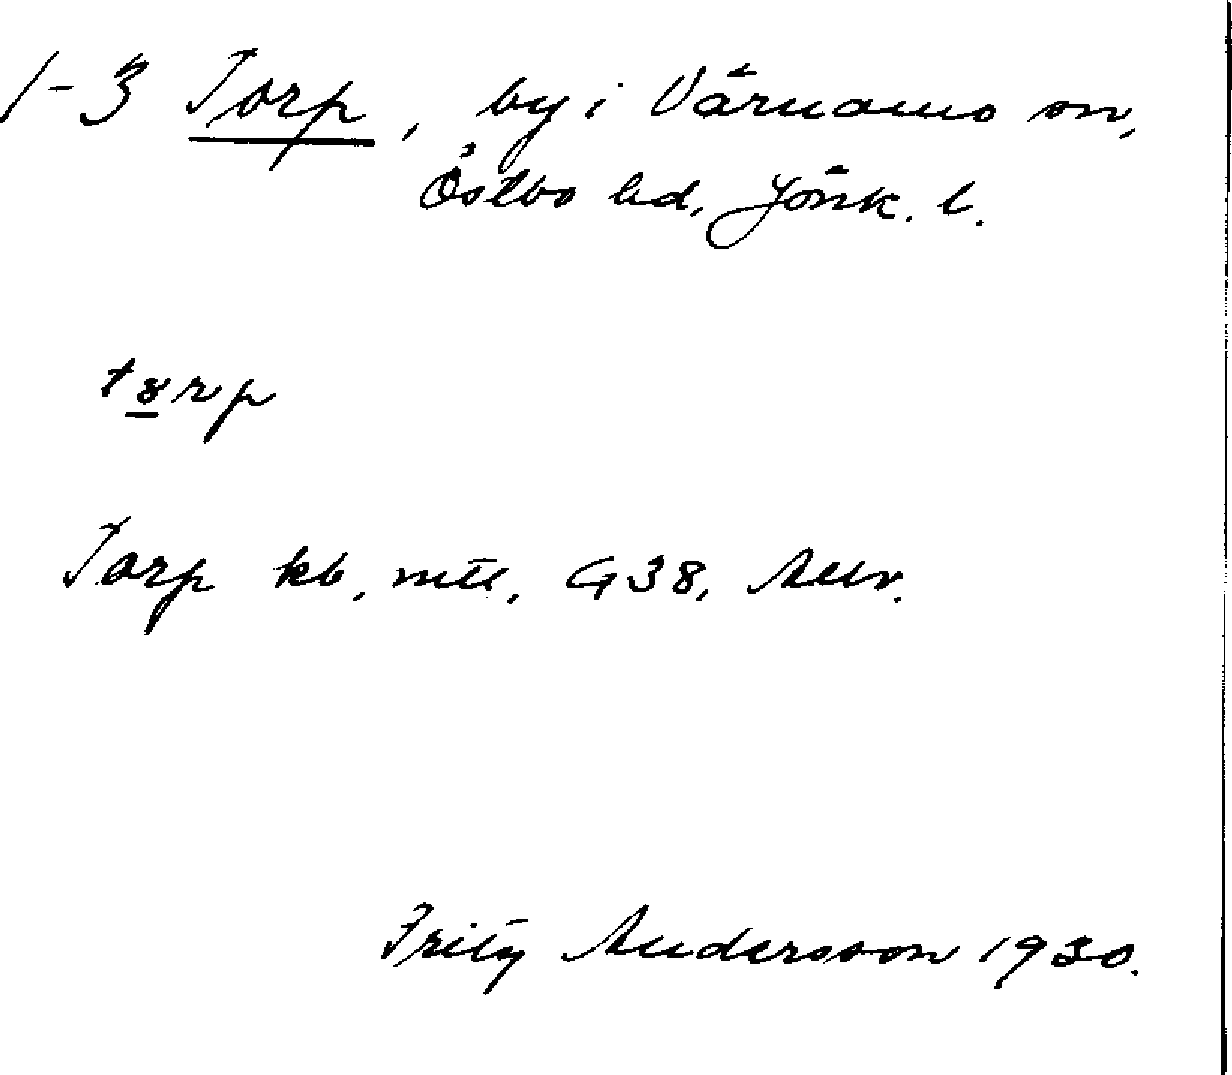 1-3 Torp, by i Värnamo sn,
Östbo hd, Jönk. l.
tȣrp
Torp kb, mtl, G38,
Fritz Andersson 1930.